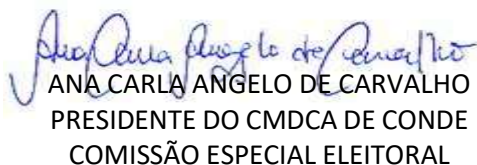 Ana Carla Angelo de Carvalho
ANA CARLA ANGELO DE CARVALHO
PRESIDENTE DO CMDCA DE CONDE
COMISSÃO ESPECIAL ELEITORAL